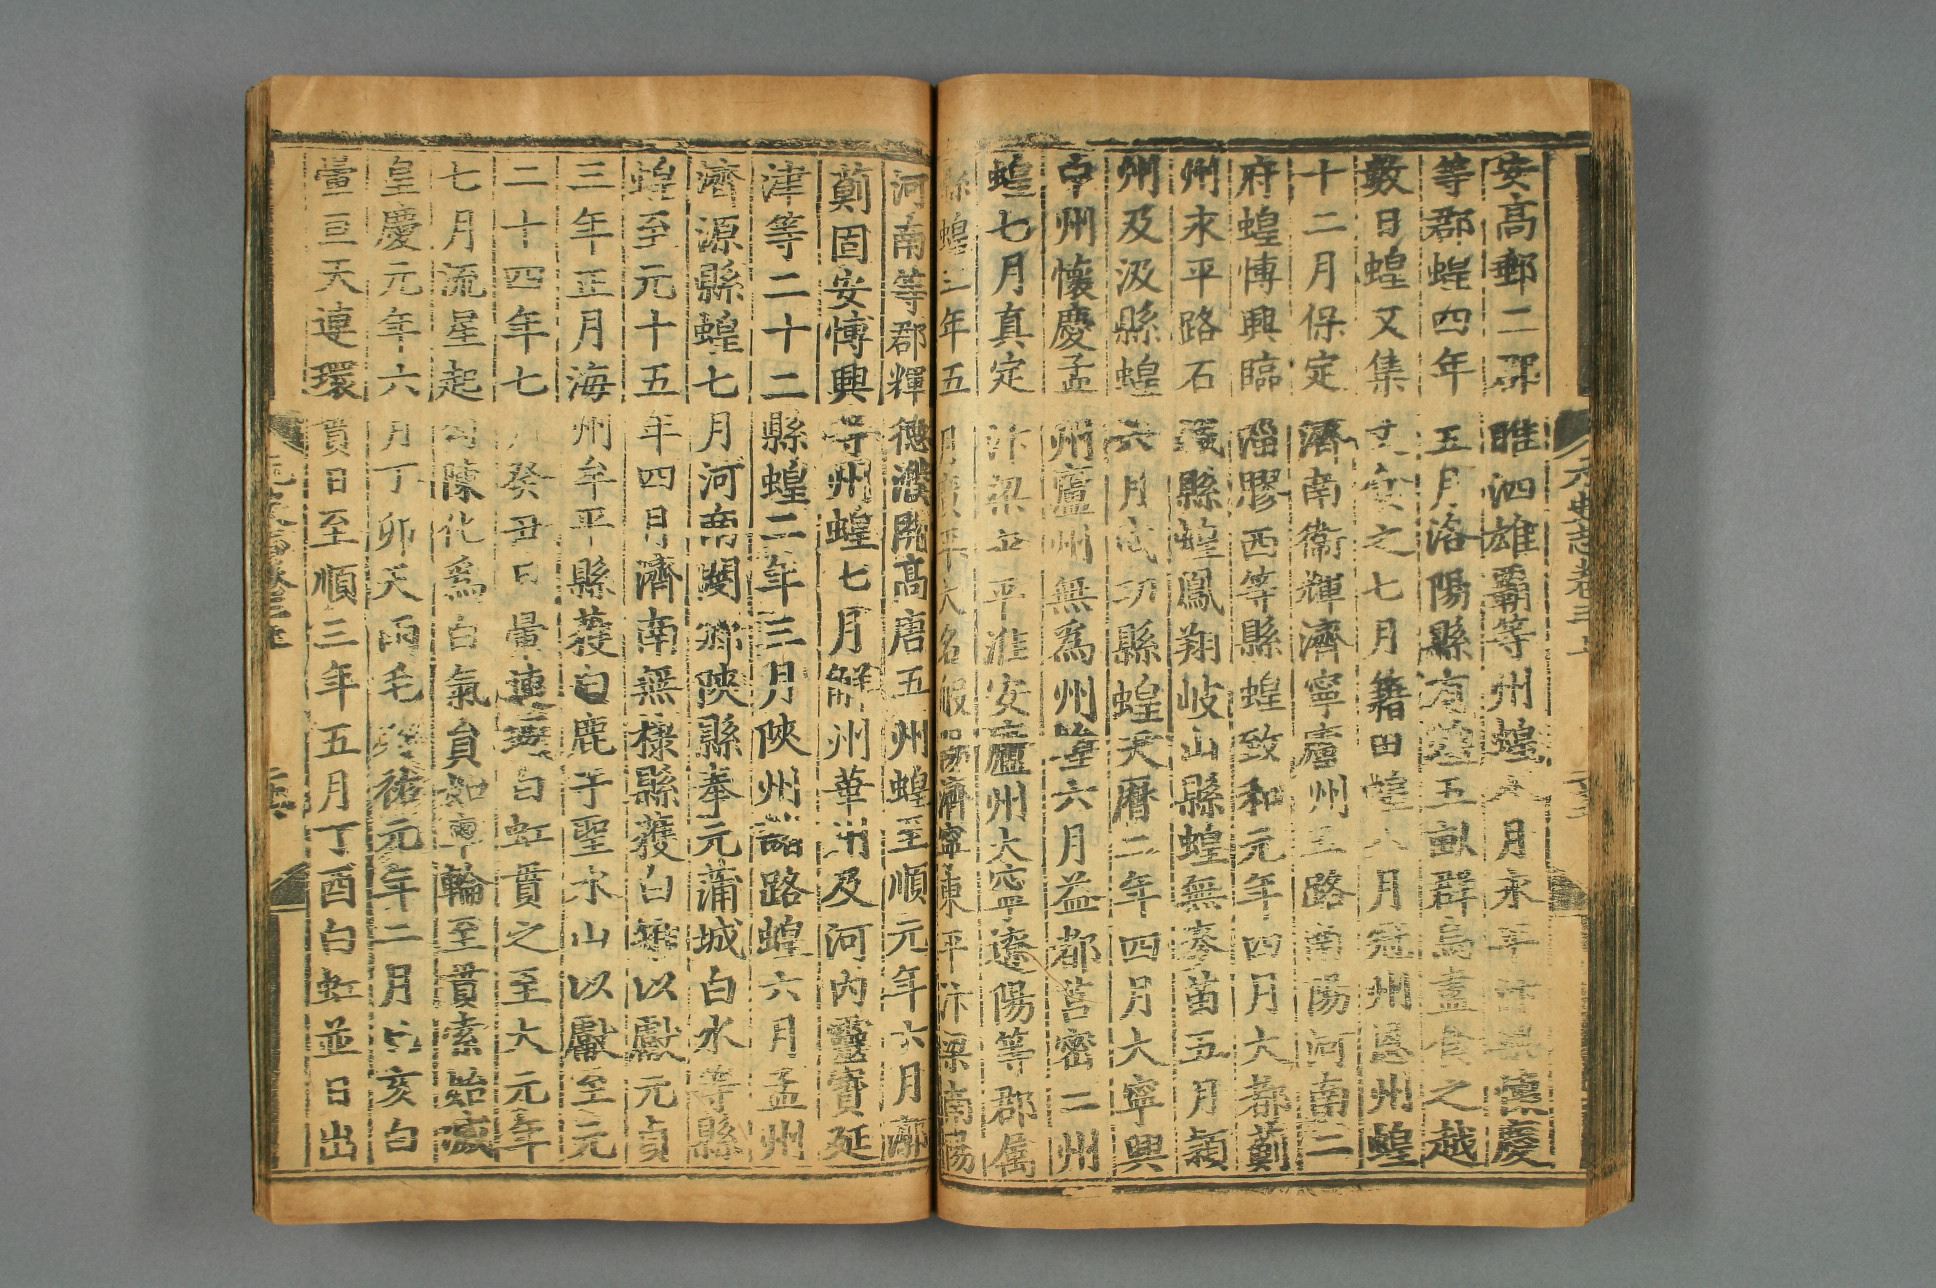 安高郵二郡睢泗雄霸等州蝗八月永平汴梁懷慶
等郡蝗四年五月洛陽縣有蝗五畝群烏盡食之越
數日蝗又集又食之七月籍田蝗八月冠州恩州蝗
十二月保定濟南衛輝濟寧廬州五路南陽河南二
府蝗博興臨淄膠西等縣蝗致和元年四月大都薊
州永平路石城縣蝗鳳翔岐山縣蝗無麥苗五月潁
州及汲縣蝗六月武功縣蝗天曆二年四月大寧興
中州懷慶孟州廬州無爲州蝗六月益都莒密二州
蝗七月真定汴梁永平淮安廬州大寧遼陽等郡屬
縣蝗三年五月廣平大名般陽濟寧東平汴梁南陽
河南等郡輝德濮開高唐五州蝗至順元年六月漷
薊固安博興等州蝗七月解州華州及河內靈寶延
津等二十二縣蝗二年三月陝州諸路蝗六月孟州
濟源縣蝗七月河南閿鄉陝縣奉元蒲城白水等縣
蝗至元十五年四月濟南無棣縣獲白雉以獻元貞
三年正月海州牟平縣獲白鹿于聖水山以獻至元
二十四年七月癸丑日暈連環白虹貫之至大元年
七月流星起勾陳化爲白氣員如車輪至貫索始滅
皇慶元年六月丁卯天雨毛延祐元年二月己亥白
暈亘天連環貫日至順三年五月丁酉白虹並日出
元史志卷三上